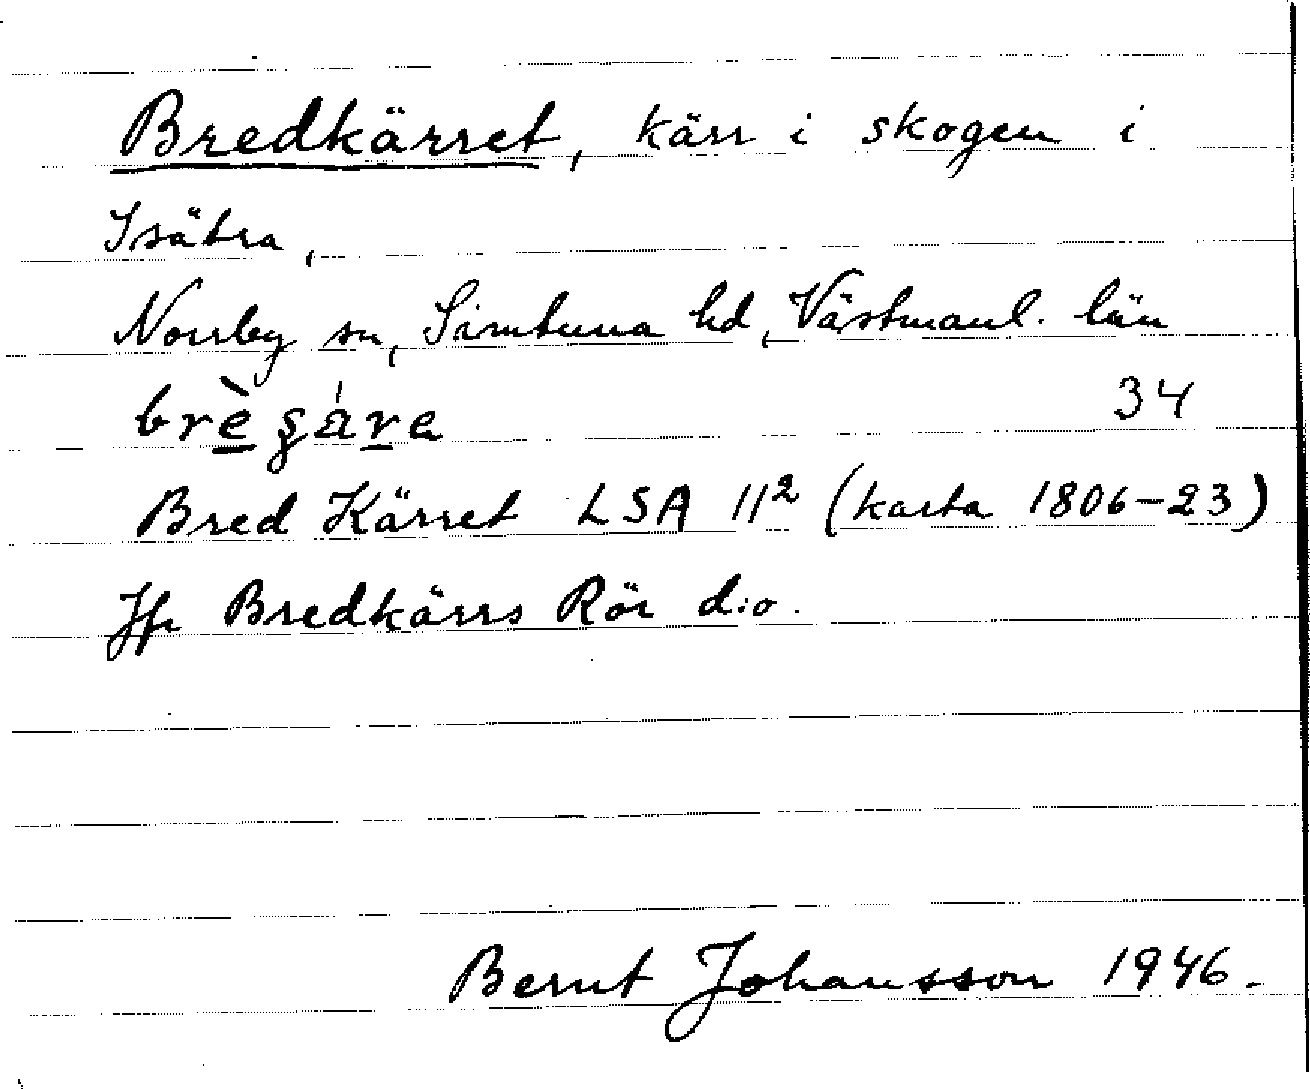 Bredkärret, kärr i skogen i
Isätra,
Norrby sn, Simtuna hd, Västmanl. län
brè̲ʂáṟa 34
Bred Kärret LSA 11² (karta 1806-23)
Jfr Bredkärrs Rör d:o.
Bernt Johansson 1946.